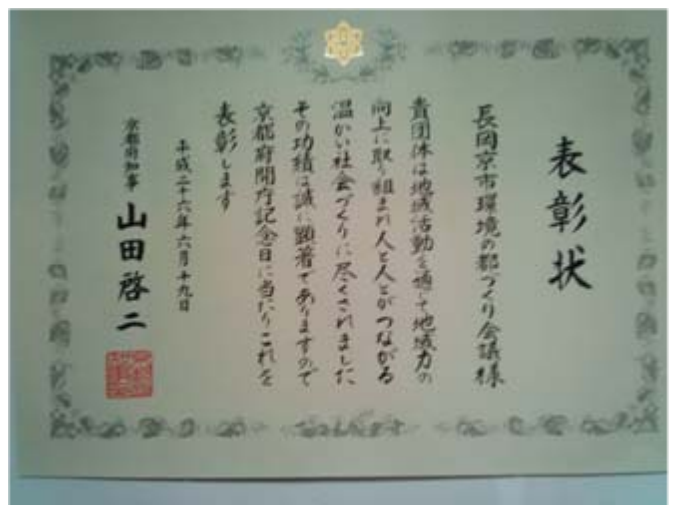 表彰状
長岡京市環境の都づくり会議様
貴団体は地域活動を通じて地域力の
向上に取り組まれ人と人とがつながる
温かい社会づくりに尽くされました
その功績は誠に顕著でありますので
京都府開庁記念日に当たりこれを
表彰します
平成二十六年六月十九日
京都府知事 山田啓二